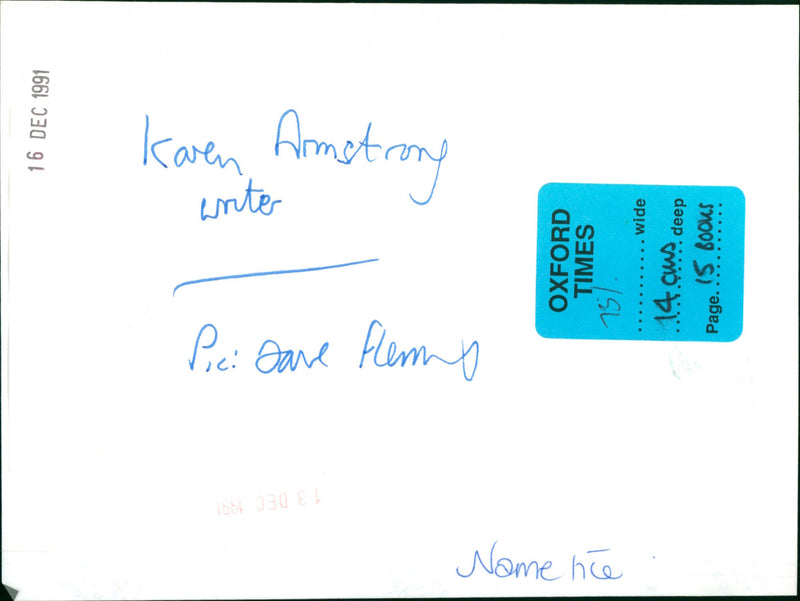 16 DEC 1991
Karen Armstrong
writer
Pic: Dave Fleming
13 DEC 1991
OXFORD
TIMES
75%
..........wide
14 cms deep
Page. 15 BOOKS
Name